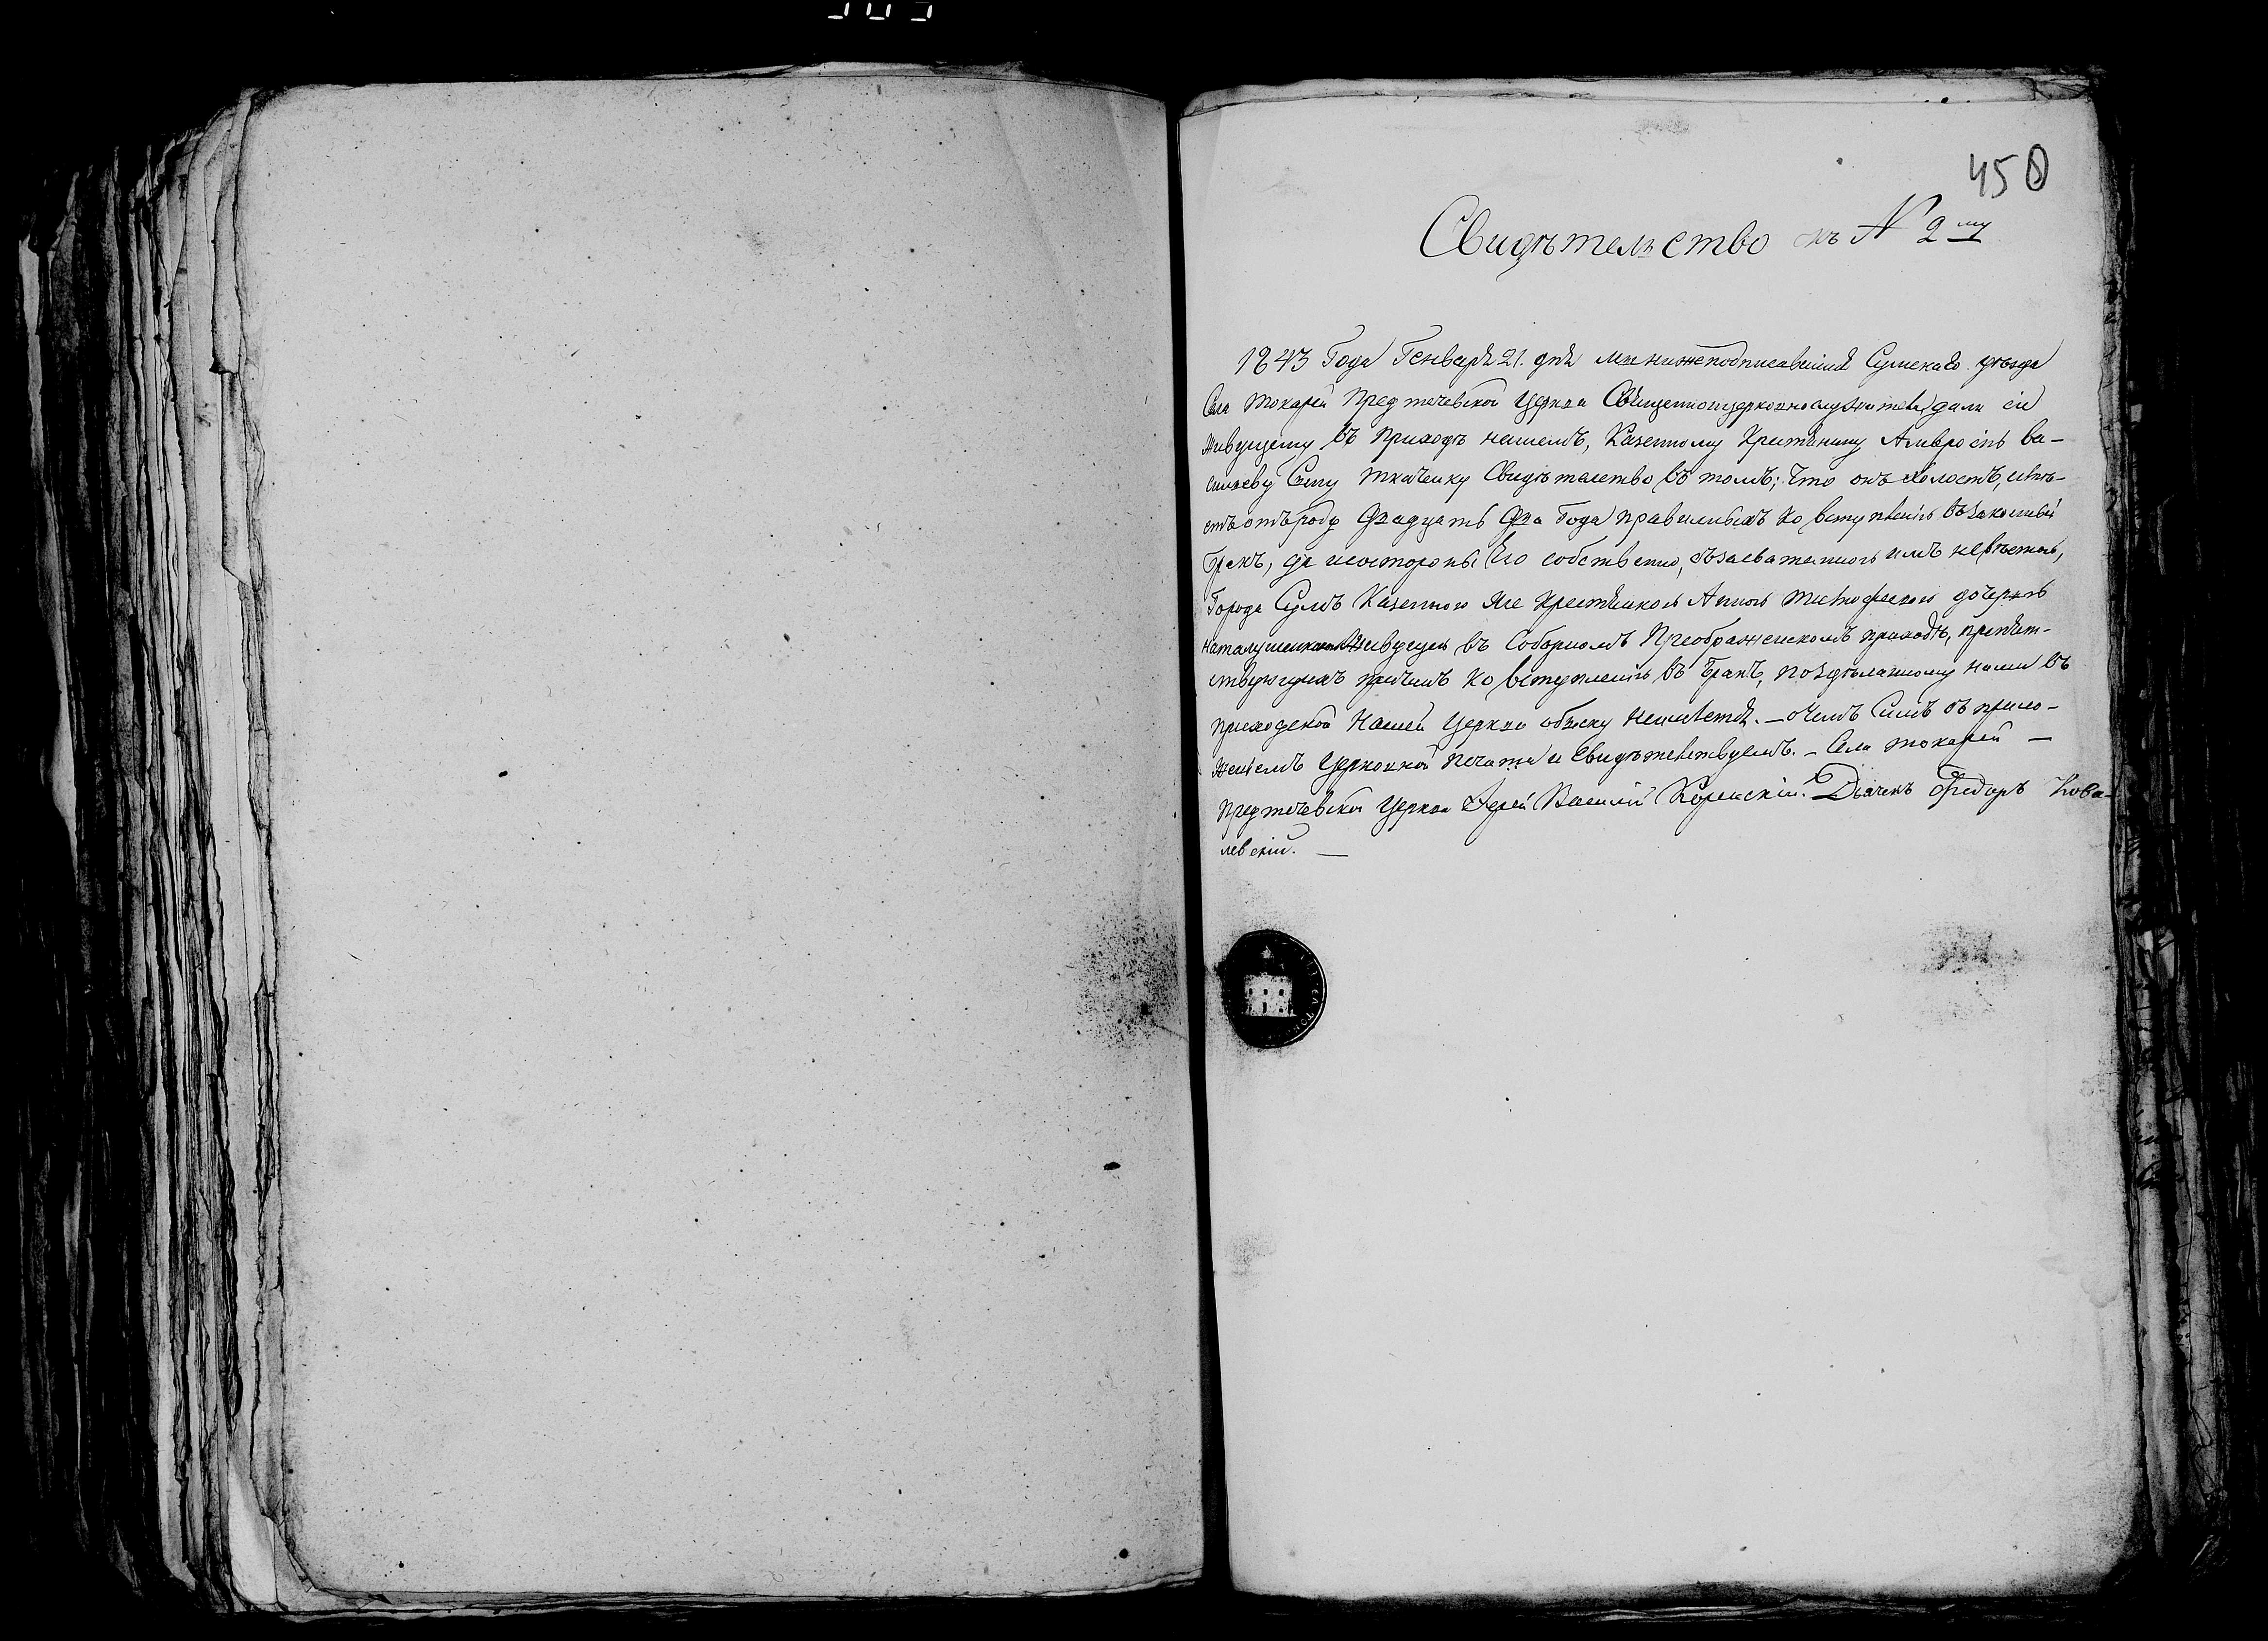 450
Свидѣтельство къ № 2му
1843 Года Генваря 21. дня мы нижеподписавшиися Сумскаго уѣзда
Села Токарей Предтечевской Церкви Священноицерковнослужители дали сіе
живущему въ приходѣ нашемъ, Казенному Крестьянину Амвросію Ва-
сильеву Сыну Ткаченку Свидѣтельство въ томъ; Что онъ холостъ, имѣ-
етъ отъ роду Двадцать Два Года правильныхъ ко вступленію въ законный
Бракъ, да и состороны Его собственно, съ засватанною имъ невѣстою,
Города Сумъ Казенною же крестьянкою Анною Тимофеевою дочерью
живущею въ Соборномъ Преображенскомъ приходѣ, препят-
ствующихъ причинъ ко вступленію въ Бракъ, по здѣланному нами въ
приходской Нашей Церкви обыску неимѣется. — О чемъ Симъ съ прило-
женіемъ Церковной печати и Свидѣтельствуемъ. — Села Токарей —
Предтечевской Церкви Іерей Василій Дьячекъ Федоръ Кова-
левскій. —